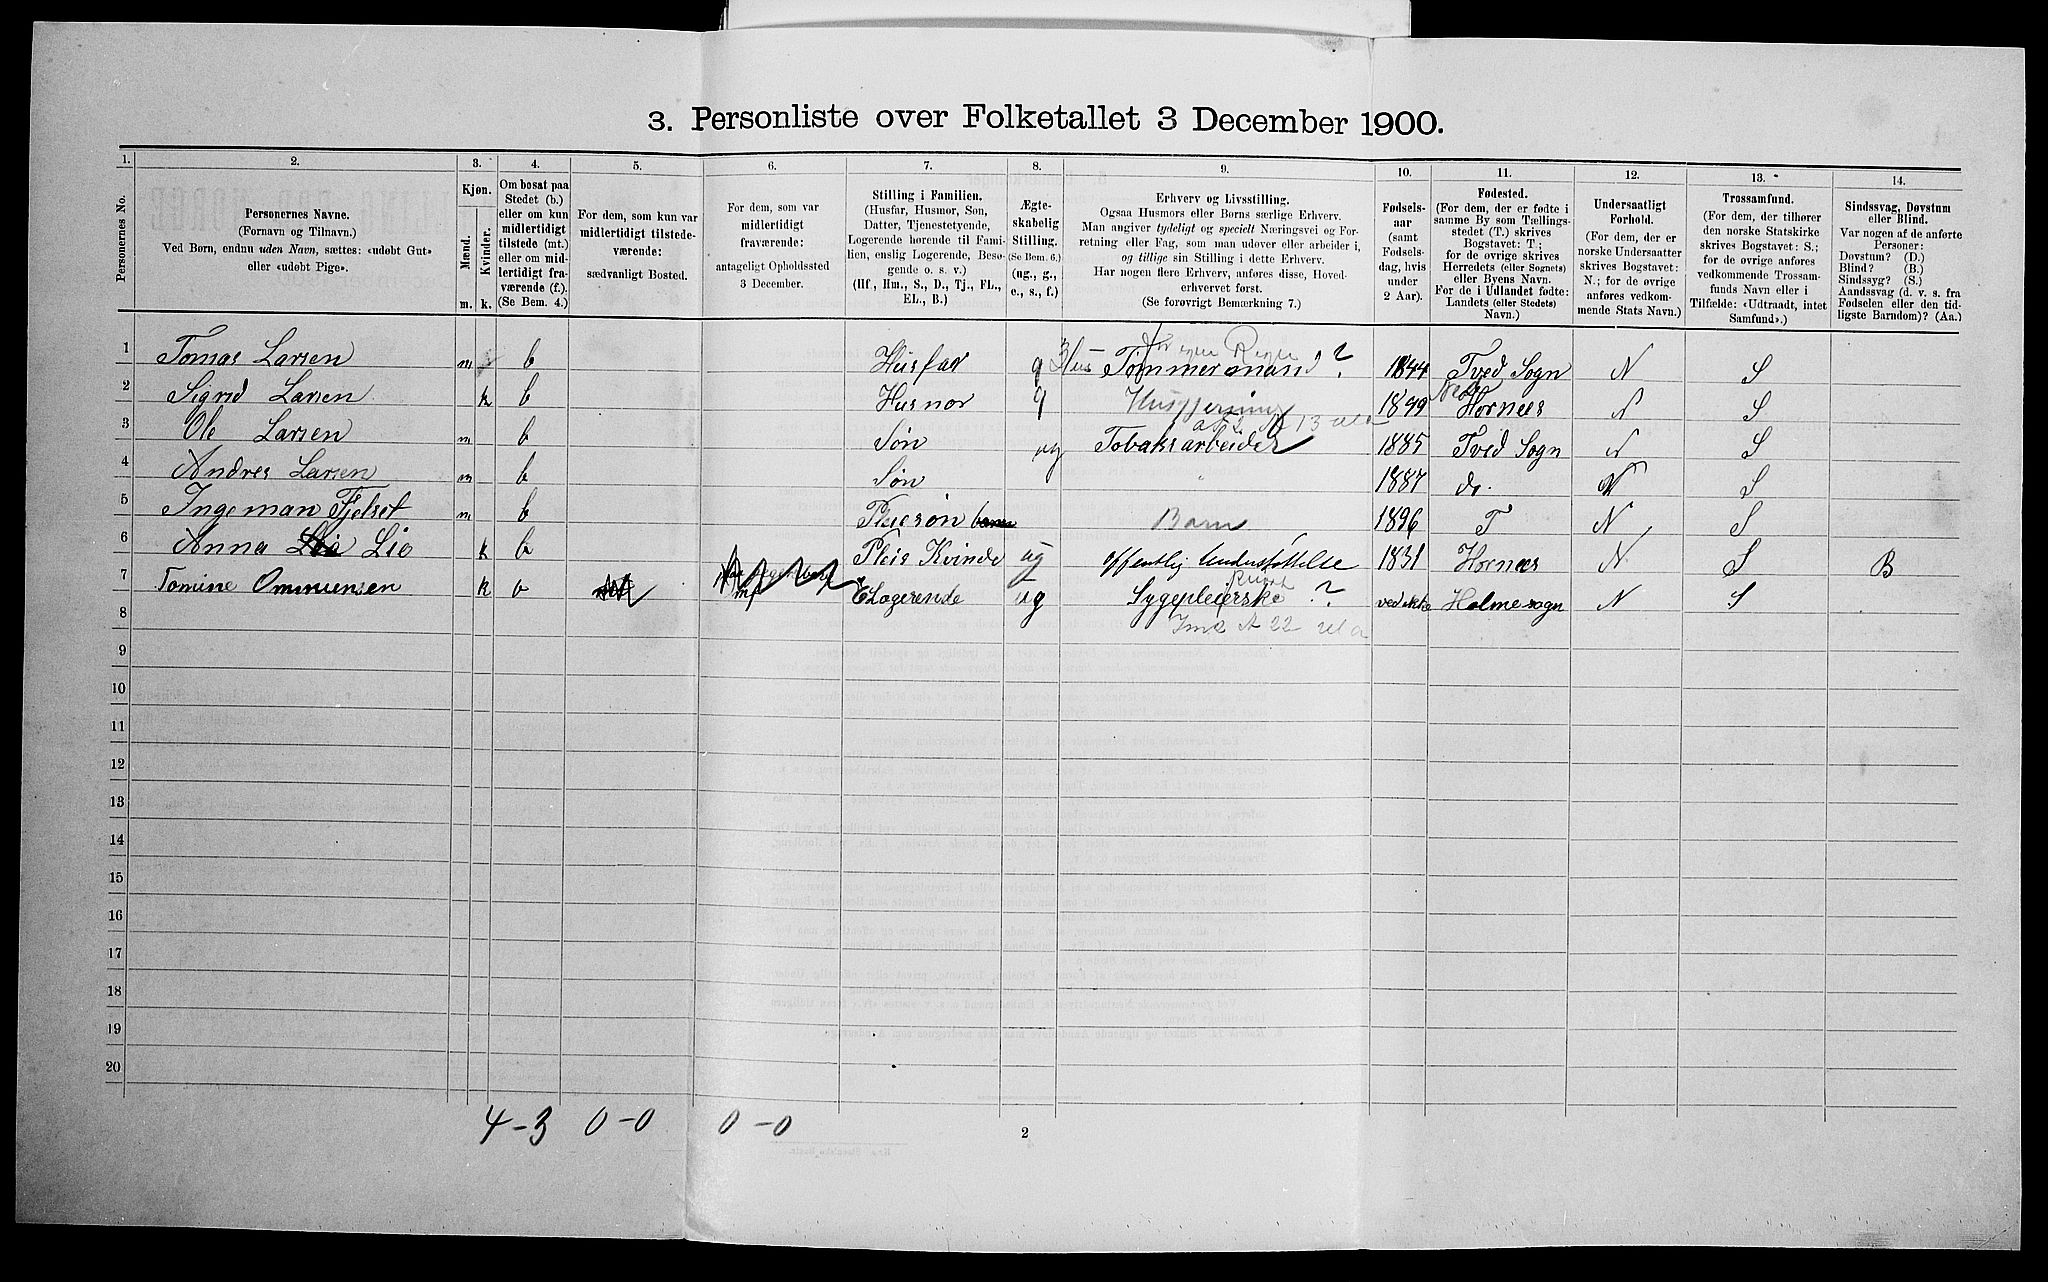 3. Personliste over Folketallet 3 December 1900.
1. 2. 3. 4. 5. 6. 7. 8. 9. 10. 11. 12. 13. 14.
Personernes No.
Personernes Navne.
(Fornavn og Tilnavn.)
Ved Børn, endnu uden Navn, sættes: «udøbt Gut»
eller «udøbt Pige».
Kjøn.
Mænd.
Kvinder.
m. k.
Om bosat paa
Stedet (b.)
eller om kun
midlertidigt
tilstede (mt.)
eller om mid-
lertidigt fra-
værende (f.).
(Se Bem. 4.)
For dem, som kun var
midlertidigt tilstede-
værende:
sædvanligt Bosted.
For dem, som var
midlertidigt
fraværende:
antageligt Opholdssted
3 December.
Stilling i Familien.
(Husfar, Husmor, Søn,
Datter, Tjenestetyende,
Logerende hørende til Fami-
lien, enslig Logerende, Besø-
gende o. s. v.)
(Hf., Hm., S., D., Tj., FL.,
EL., B.)
Ægte-
skabelig
Stilling.
(Se Bem. 6.)
(ug., g.,
e., s., f.)
Erhverv og Livsstilling.
Ogsaa Husmors eller Børns særlige Erhverv.
Man angiver tydeligt og specielt Næringsvei og For-
retning eller Fag, som man udøver eller arbeider i,
og tillige sin Stilling i dette Erhverv.
Har nogen flere Erhverv, anføres disse, Hoved-
erhvervet først.
(Se forøvrigt Bemærkning 7.)
Fødsels-
aar
(samt
Fødsels-
dag, hvis
under
2 Aar).
Fødested.
(For dem, der er fødte i
samme By som Tællings-
stedet (T.) skrives
Bogstavet: T.;
for de øvrige skrives
Herredets (eller Sognets)
eller Byens Navn.
For de i Udlandet fødte:
Landets (eller Stedets)
Navn.)
Undersaatligt
Forhold.
(For dem, der er
norske Undersaatter
skrives Bogstavet:
N.; for de øvrige
anføres vedkom-
mende Stats Navn.)
Trossamfund.
(For dem, der tilhører
den norske Statskirke
skrives Bogstavet: S.;
for de øvrige anføres
vedkommende Trossam-
funds Navn eller i
Tilfælde: «Udtraadt, intet
Samfund».)
Sindssvag, Døvstum
eller Blind.
Var nogen af de anførte
Personer:
Døvstum? (D.)
Blind? (B.)
Sindssyg? (S.)
Aandssvag (d. v. s. fra
Fødselen eller den tid-
ligste Barndom)? (Aa.)
1 Tomas Larsen m b Husfar g Hus Tømmermand ? 1844 Tved Sogn N S
2 Sigrid Larsen k b Husmor g Husgjerning 1849 Hornees N S
3 Ole Larsen m b Søn ug Tobaksarbeider 1885 Tved Sogn N S
4 Andres Larsen m b Søn 1887 do. N S
5 Ingeman Fjelset m b Pleiesøn Barn 1896 T N S
6 Anna Lio k b Pleis Kvinde ug offentlig Understøttelse 1831 Hornees N S B
7 Tomine Ommuensen k b Logerende ug Sygepleierske ? ved ikke Holme sogn N S
8
9
10
11
12
13
14
15
16
17
18
19
20
4-3 0-0 0-0
2